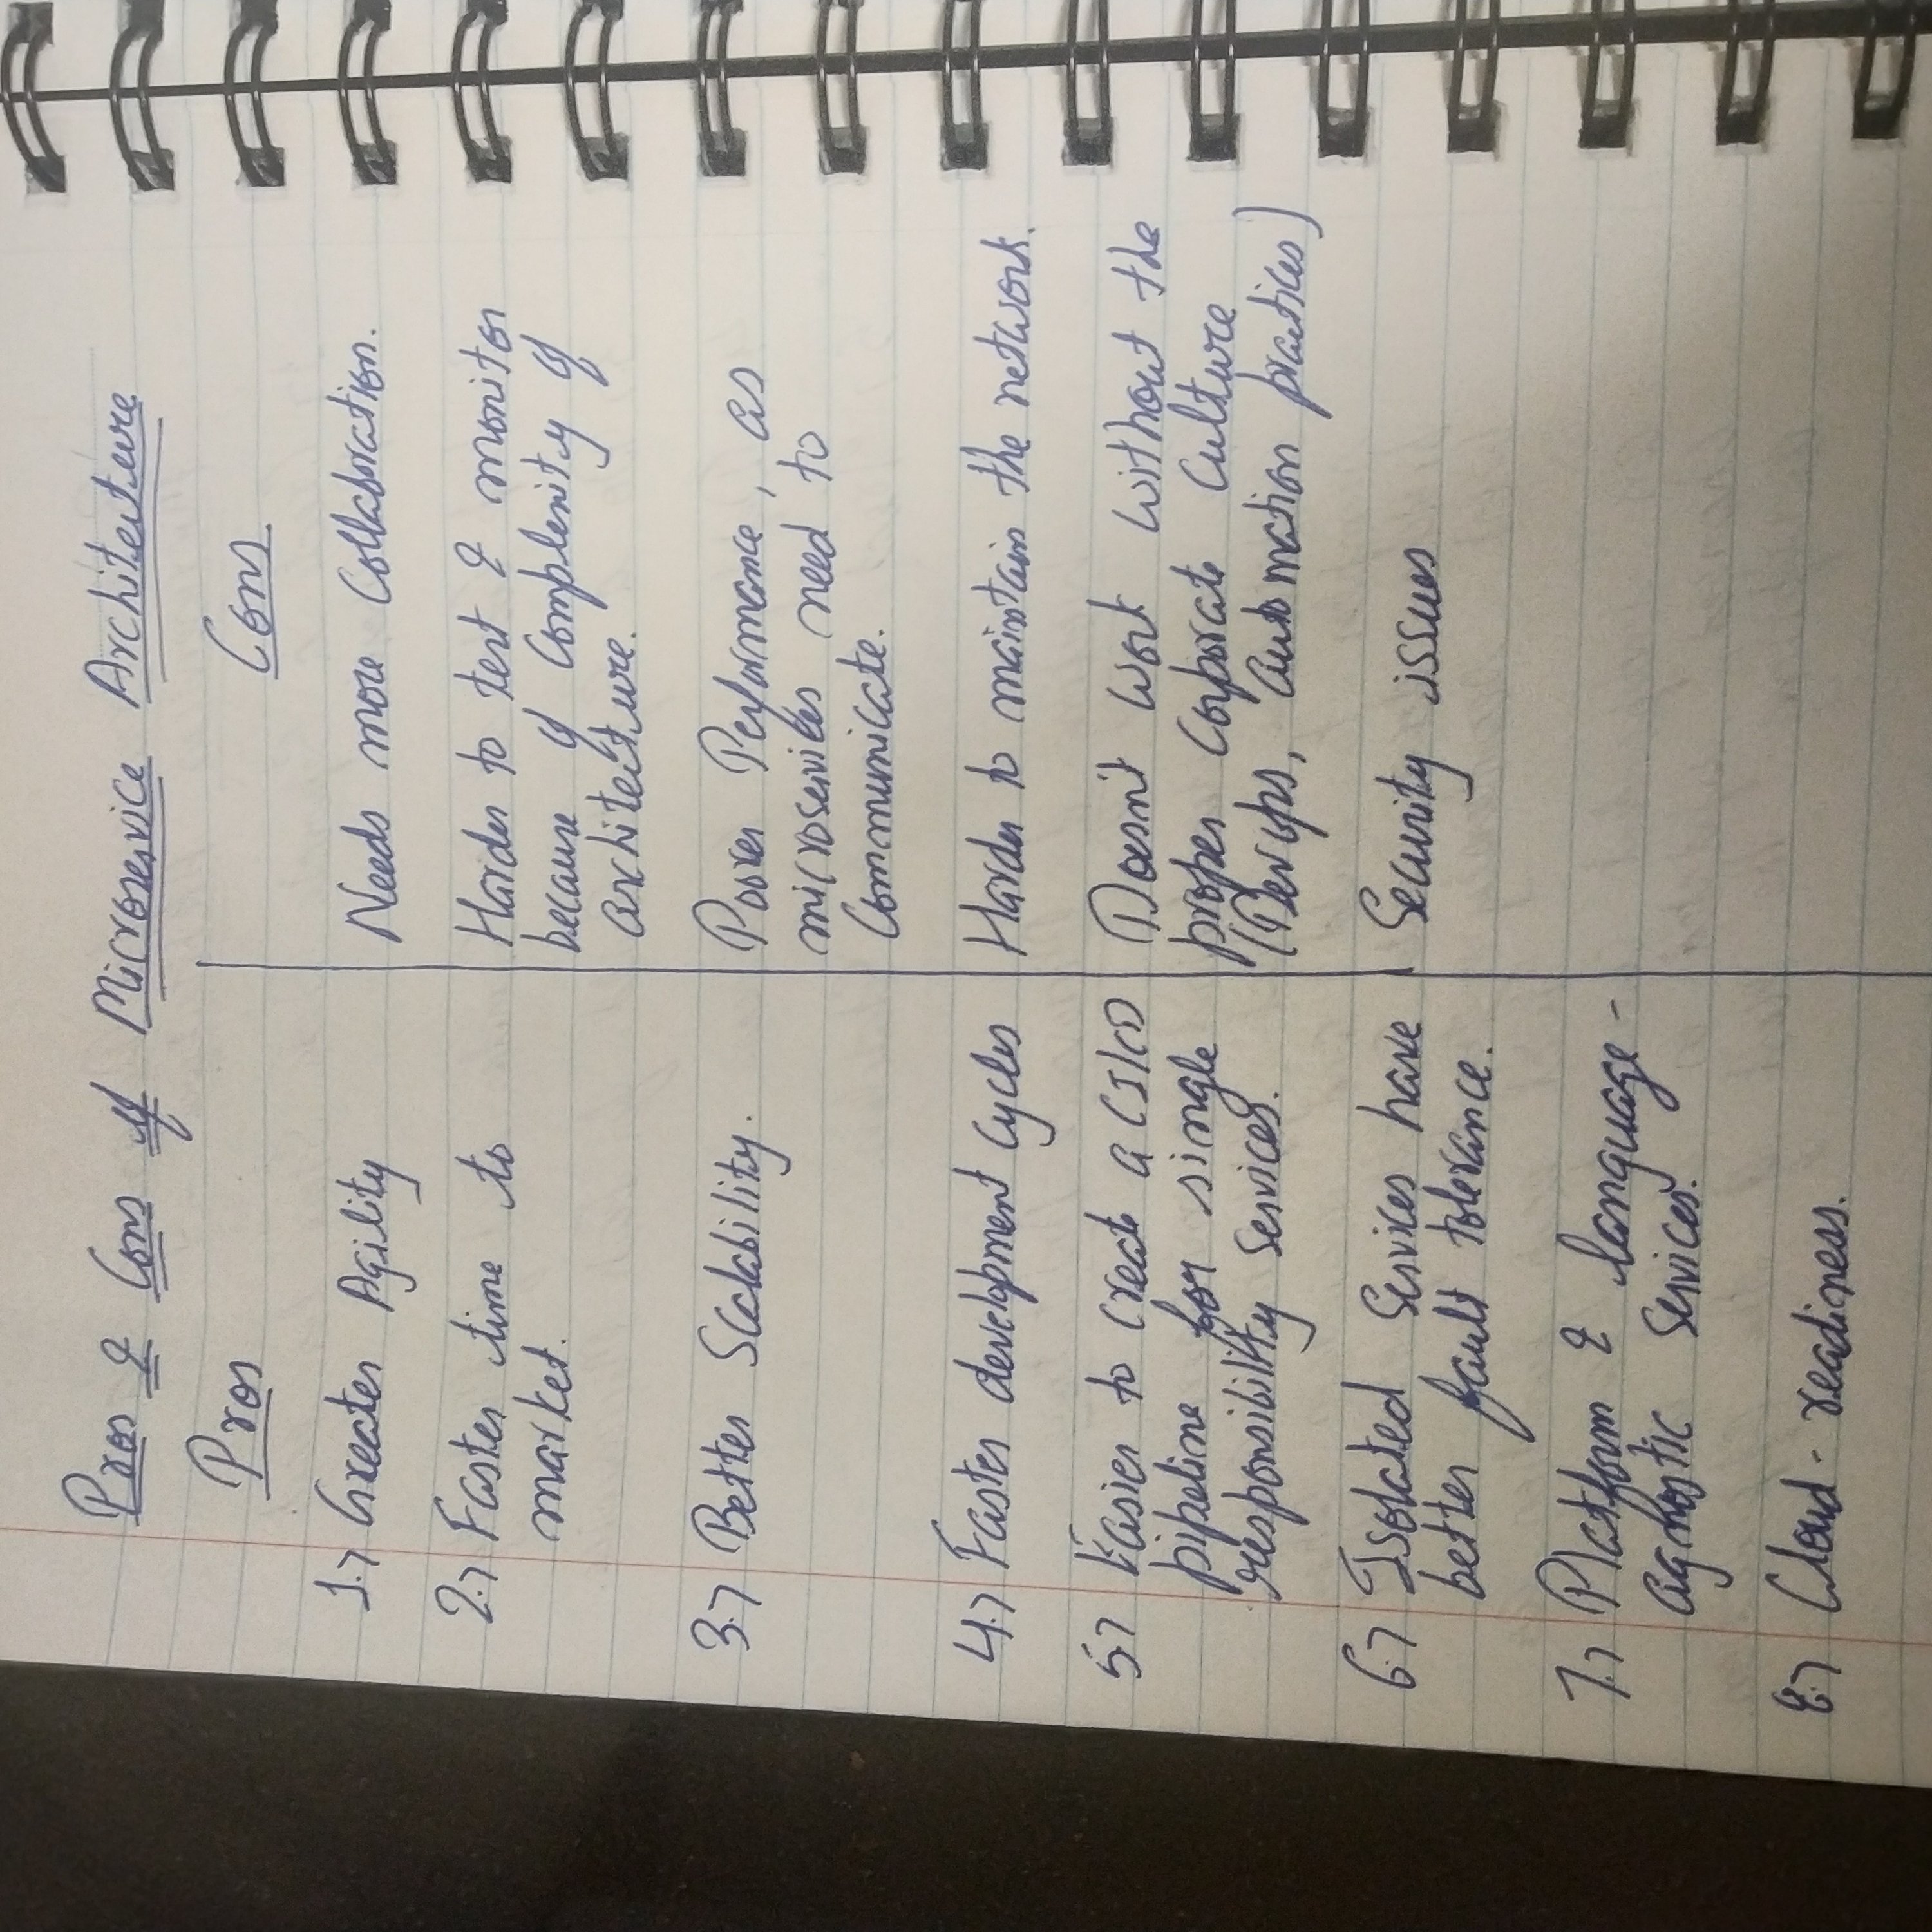 Pros & Cons of Microservice Architecture
Pros
Cons
1.> Greater Agility
Needs more Collaboration.
2.> Faster time to
market.
Harder to test & monitor
because of Complexity of
architecture.
3.> Better Scalability.
Poorer Performance, as
microservices need to
Communicate.
4.> Faster development Cycles
Harder to maintain the network.
5.> Easier to create a CI/CD
pipeline for single
responsibility services.
Doesn't work without the
proper Corporate Culture
(Devops, automation practices)
6.> Isolated Services have
better fault tolerance.
Security issues
7.> Platform & language-
agnostic services.
8.> Cloud-readiness.